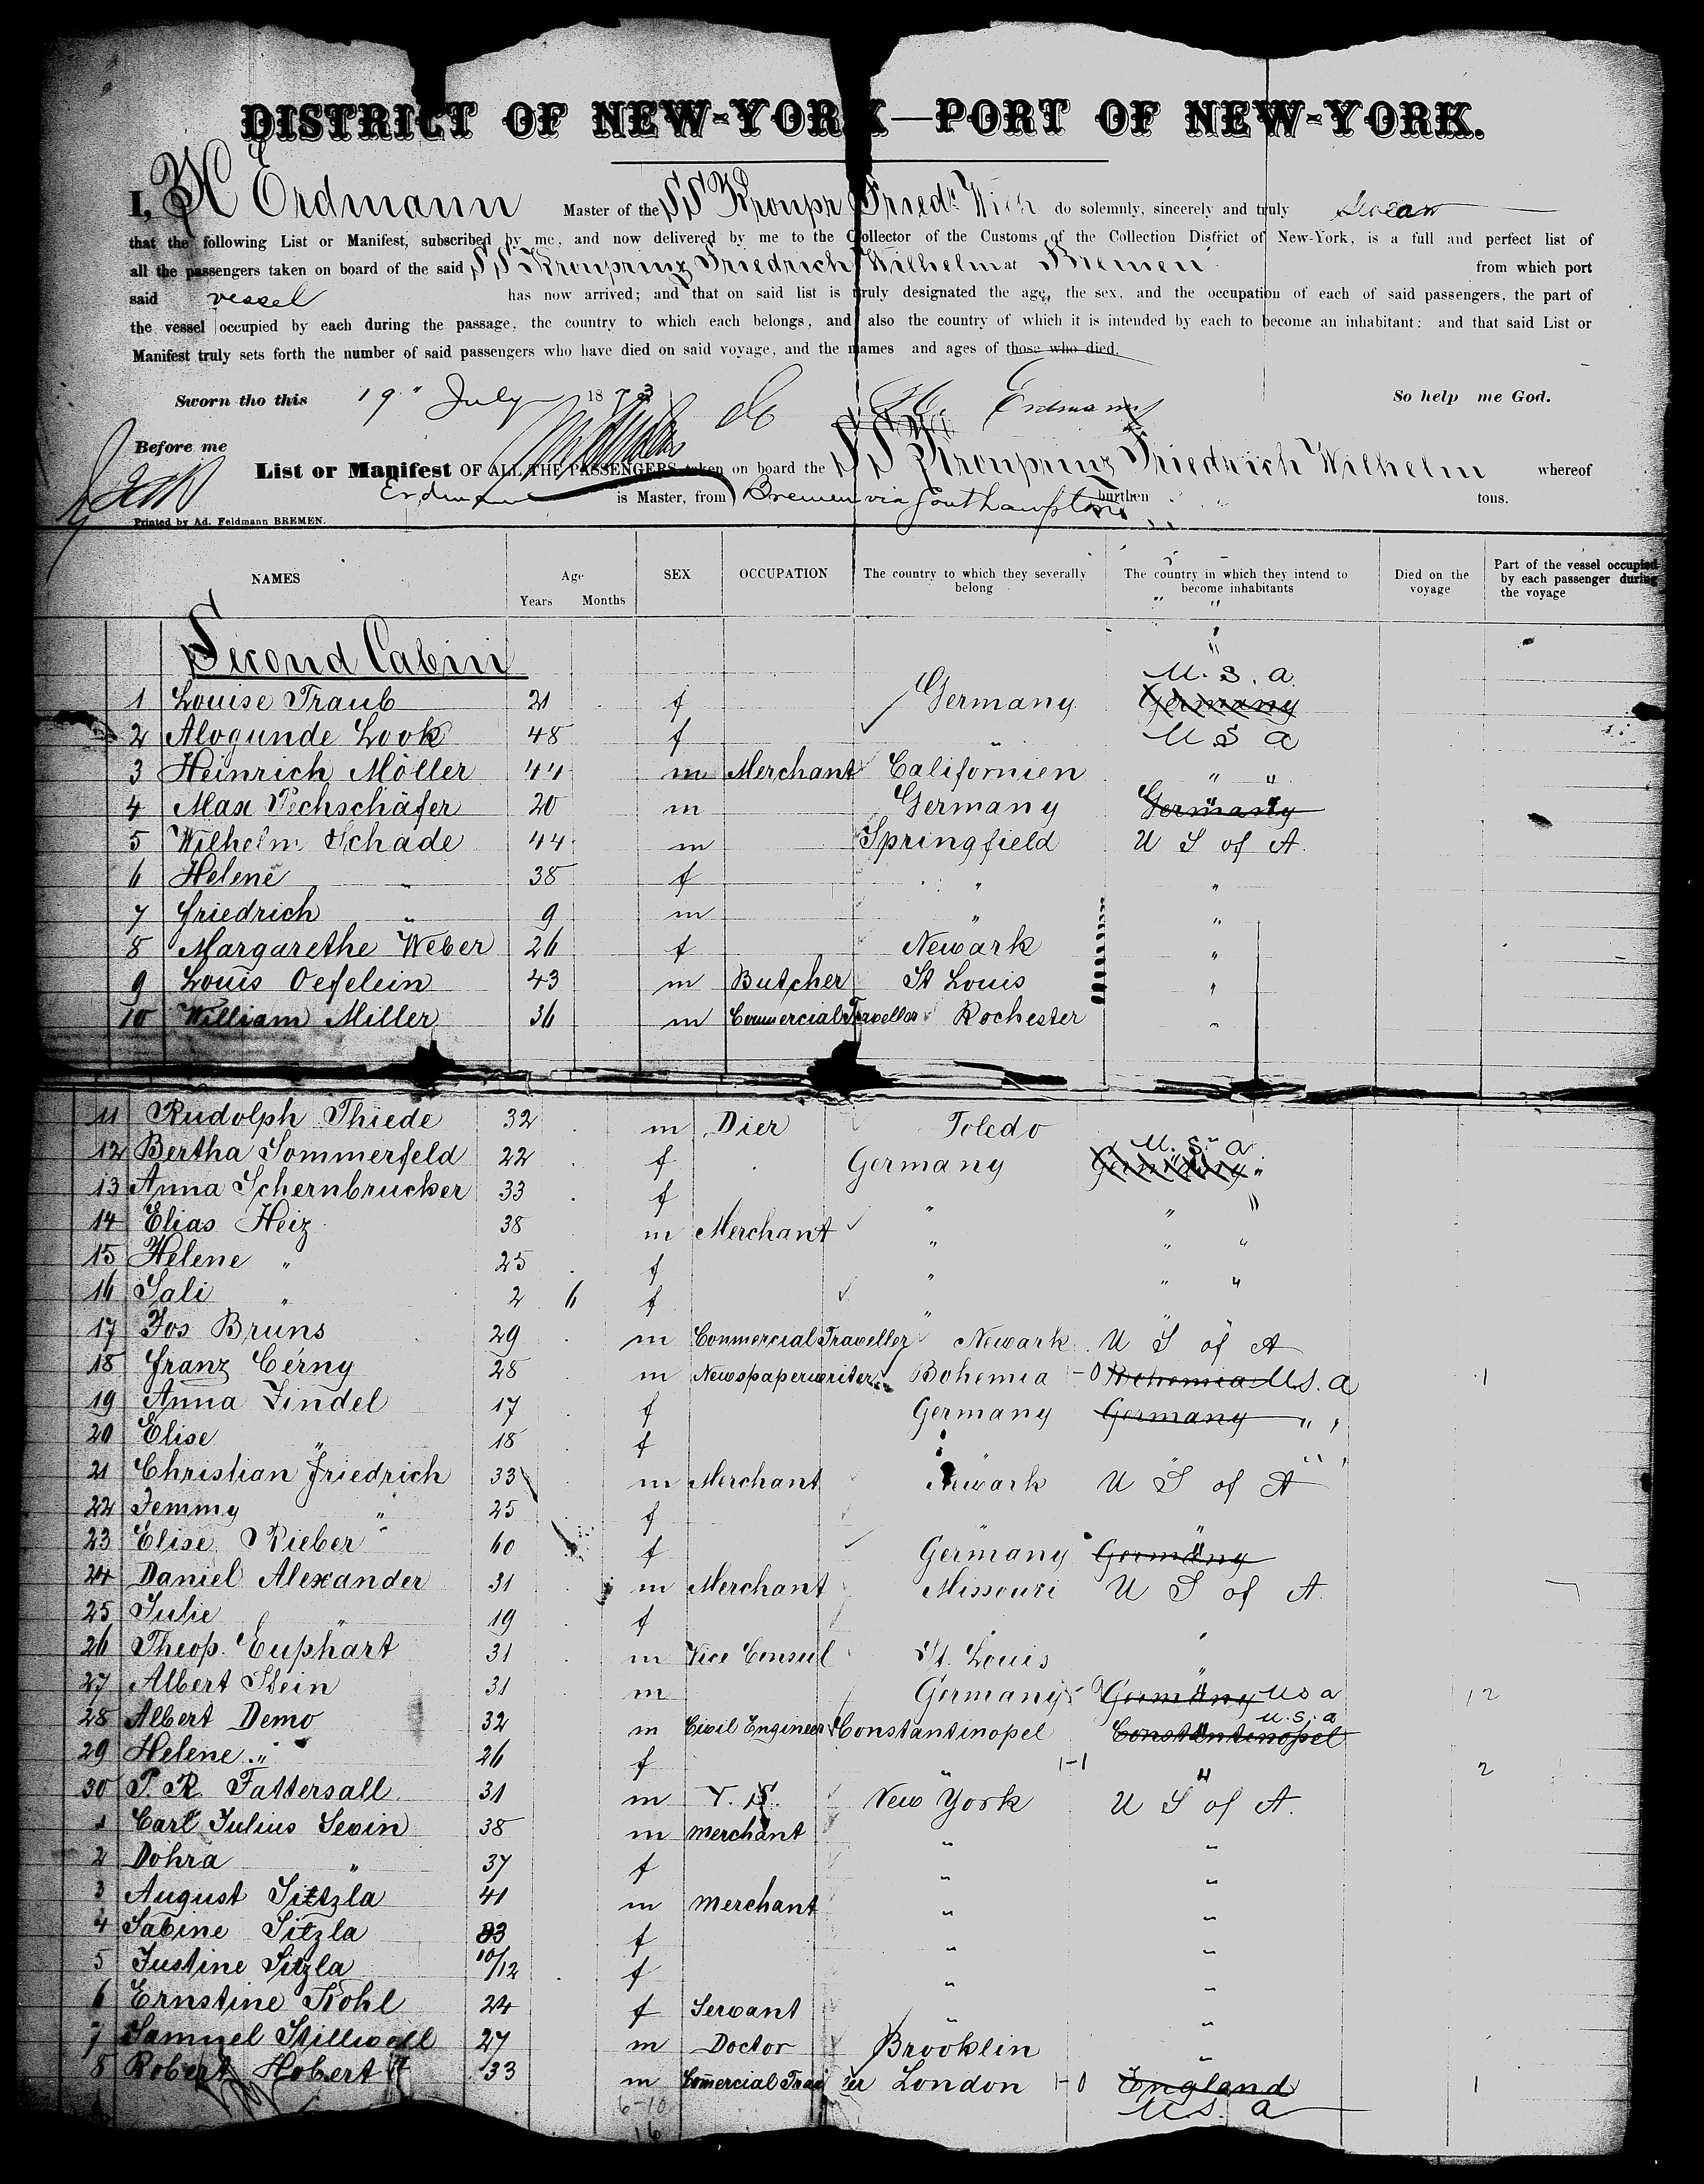 DISTRICT OF NEW-YORK—PORT OF NEW-YORK.
I, H Erdmann Master of the SS Kronpr Friedr Wilh do solemnly, sincerely and truly swear
that the following List or Manifest, subscribed by me, and now delivered by me to the Collector of the Customs of the Collection District of New-York, is a full and perfect list of
all the passengers taken on board of the said SS Kronprinz Friedrich Wilhelm at Bremen from which port
said vessel has now arrived; and that on said list is truly designated the age, the sex, and the occupation of each of said passengers, the part of
the vessel occupied by each during the passage, the country to which each belongs, and also the country of which it is intended by each to become an inhabitant: and that said List or
Manifest truly sets forth the number of said passengers who have died on said voyage, and the names and ages of those who died.
Sworn tho this 19" July 1873 H. Erdmann So help me God.
Before me
List or Manifest OF ALL THE PASSENGERS taken on board the SS Kronprinz Friedrich Wilhelm whereof
Erdmann is Master, from Bremen via Southampton burthen tons.
Printed by Ad. Feldmann BREMEN.
NAMES Age Years Months SEX OCCUPATION The country to which they severally belong The country in which they intend to become inhabitants Died on the voyage Part of the vessel occupied by each passenger during the voyage
Second Cabin
U. S. a
1 Louise Traub 21 f Germany Germany
2 Alogunde Look 48 f " U S a
3 Heinrich Möller 44 m Merchant Californien " "
4 Max Pechschäfer 20 m Germany Germany " "
5 Wilhelm Schade 44 m Springfield U S of A.
6 Helene " 38 f " "
7 Friedrich " 9 m " "
8 Margarethe Weber 26 f Newark "
9 Louis Oefelein 43 m Butcher St Louis "
10 William Miller 36 m Commercial Traveller Rochester "
11 Rudolph Thiede 32 m Dier Toledo
U. S. a
12 Bertha Sommerfeld 22 f Germany Germany "
13 Anna Schernbrucker 33 f " " "
14 Elias Heiz 38 m Merchant " " "
15 Helene " 25 f " " "
16 Sali " 2 6 f "
17 Jos Bruns 29 m Commercial Traveller Newark U S of A
18 Franz Cérny 28 m Newspaperwriter Bohemia -0 Bohemia U.S. a 1
19 Anna Zindel 17 f Germany Germany " "
20 Elise " 18 f " " "
21 Christian Friedrich 33 m Merchant Newark U S of A
22 Jemmy " 25 f
23 Elise Rieber 60 f Germany Germany "
24 Daniel Alexander 31 m Merchant Missouri U S of A.
25 Julie " 19 f
26 Theop. Euphart 31 m Vice Consul St. Louis "
27 Albert Stein 31 m Germany Germany U S a 12
U. S. a
28 Albert Demo 32 m Civil Engineer Constantinopel Constantinopel
29 Helene " 26 f " 1-1 " 2
30 P. R. Tattersall 31 m New York U S of A.
1 Carl Julius Sevin 38 m merchant " "
2 Dohra " 37 f " "
3 August Sitzla 41 m merchant " "
4 Sabine Sitzla 33 f " "
5 Justine Sitzla 10/12 f " "
6 Ernstine Kohl 24 f Servant " "
7 Samuel Stillwell 27 m Doctor Brooklin "
8 Robert Hobert 33 m Commercial Traveller London 1-0 England 1
U.S. a
6-10
16